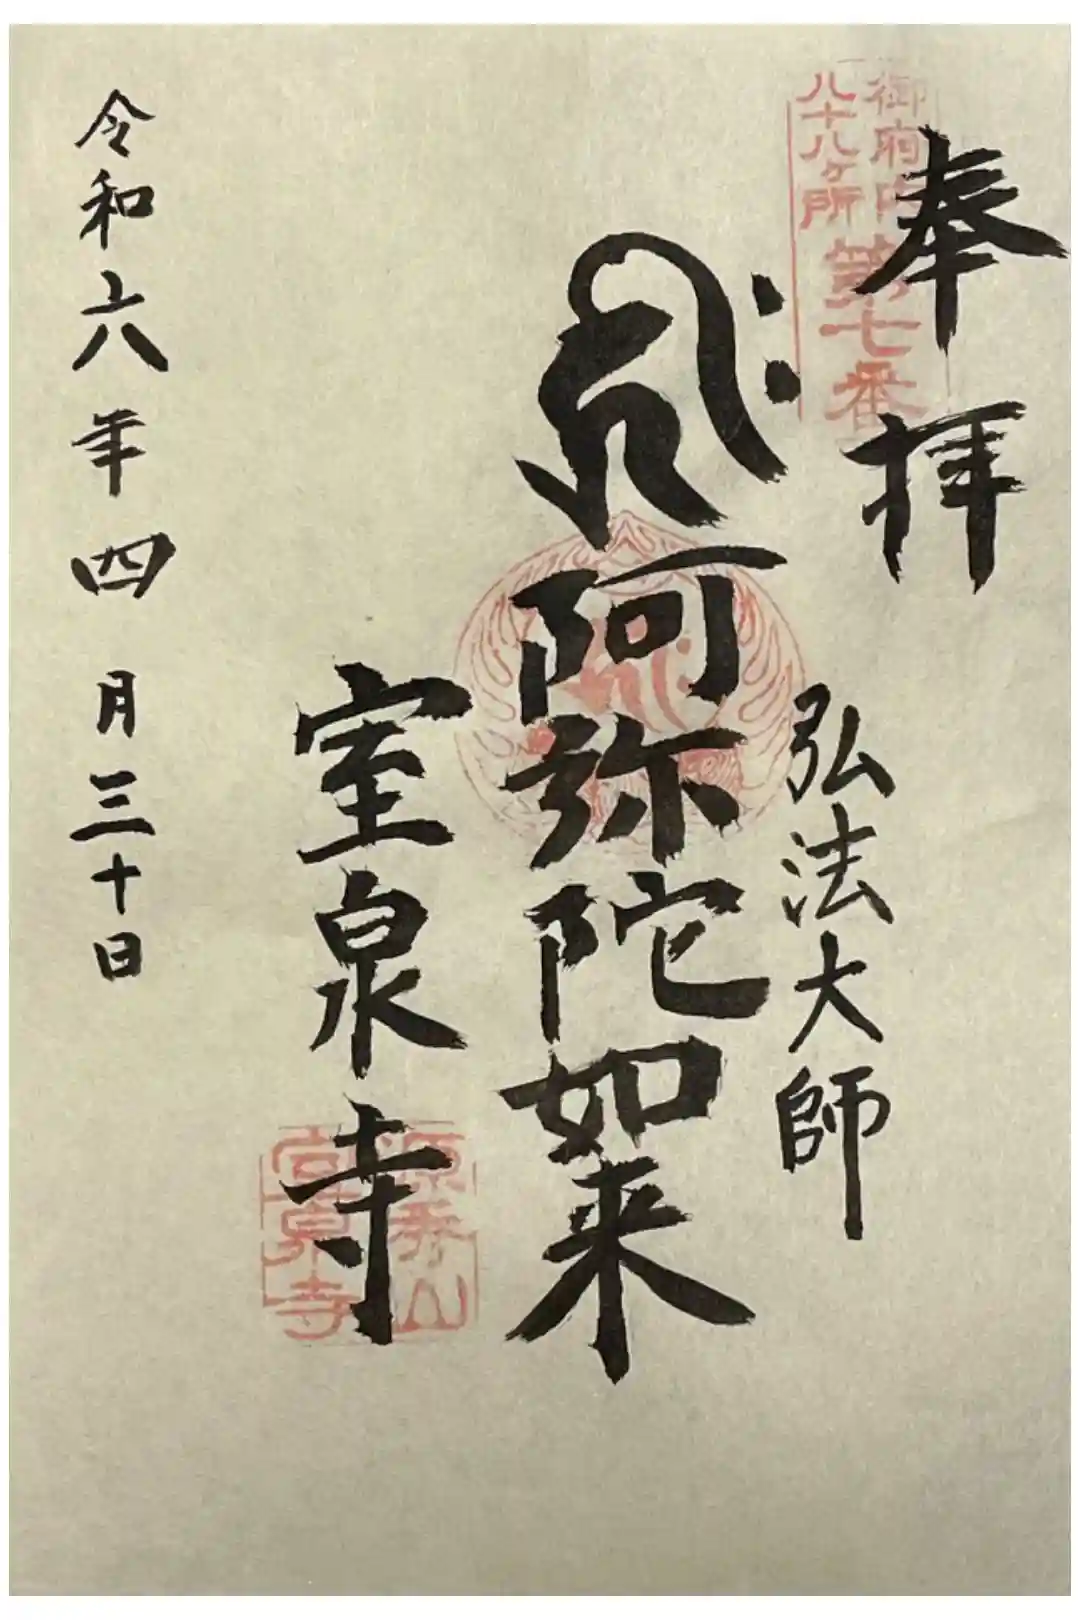 御府内
八十八ヶ所
第七番
奉拝
弘法大師
阿弥陀如来
室泉寺
源秀山
室泉寺
令和六年四月三十日